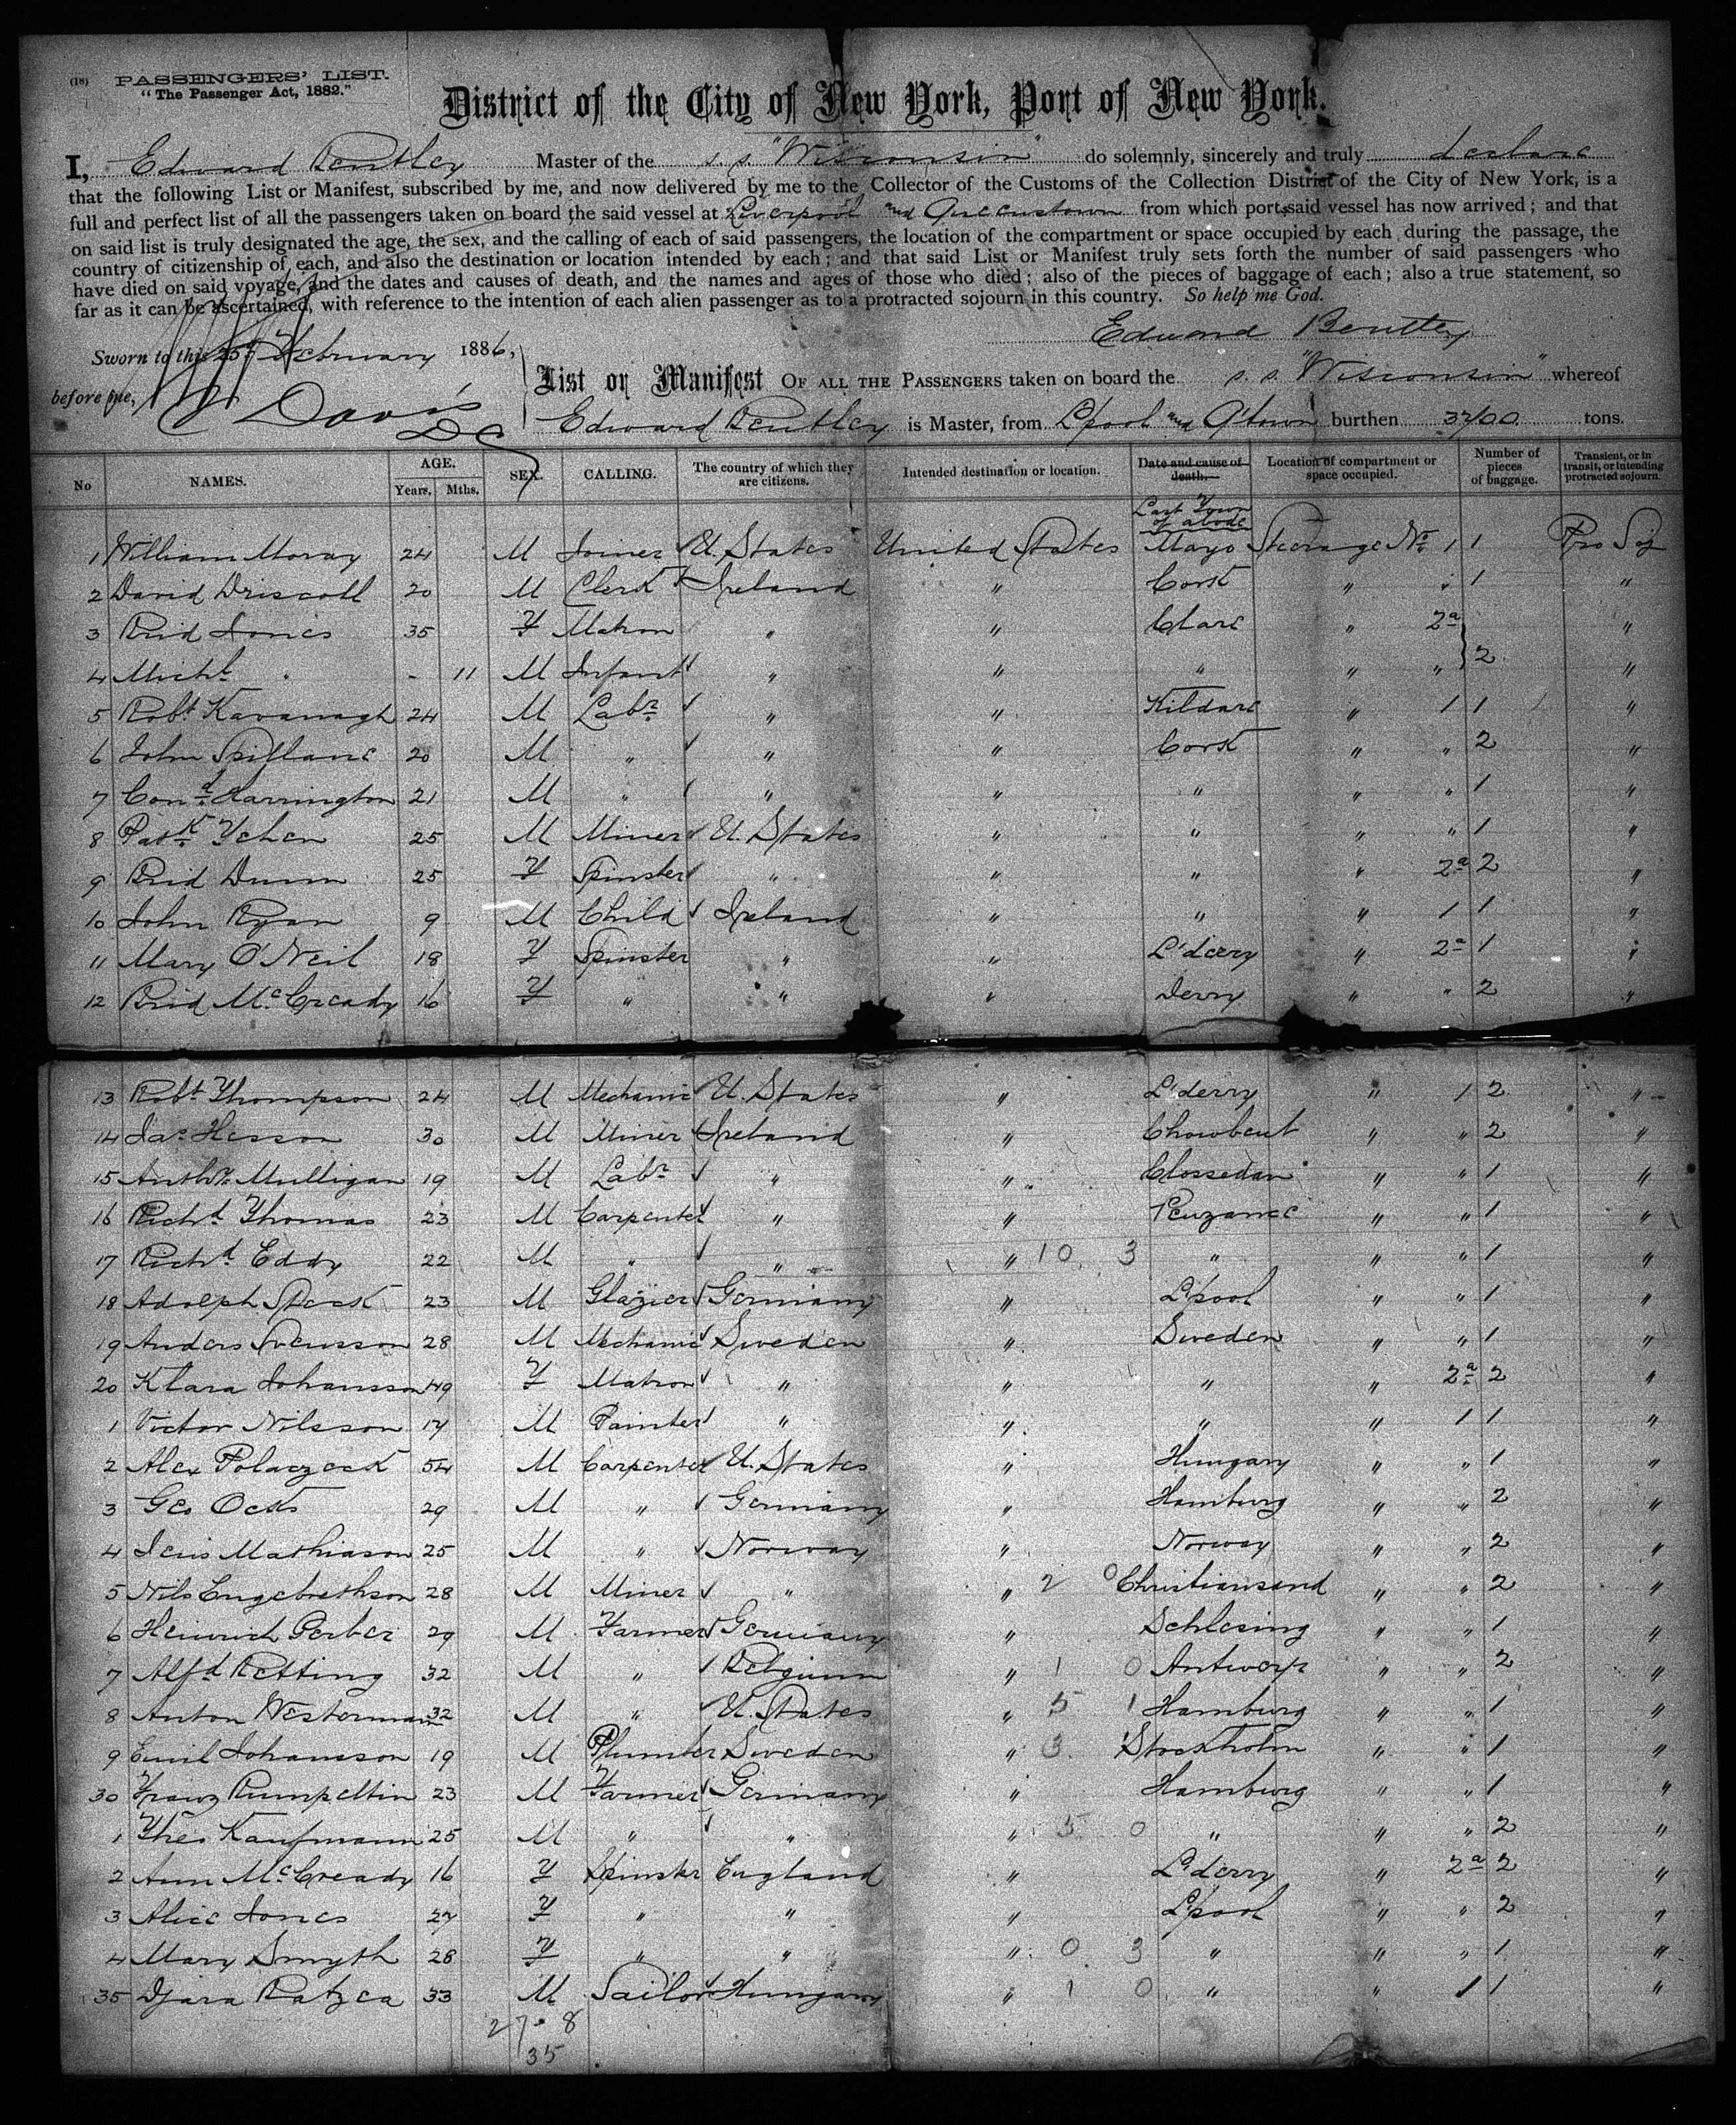 (18) PASSENGERS' LIST.
"The Passenger Act, 1882."
District of the City of New York, Port of New York.
I, Edward Bentley Master of the s. s. "Wisconsin" do solemnly, sincerely and truly declare
that the following List or Manifest, subscribed by me, and now delivered by me to the Collector of the Customs of the Collection District of the City of New York, is a
full and perfect list of all the passengers taken on board the said vessel at Liverpool and Queenstown from which port said vessel has now arrived; and that
on said list is truly designated the age, the sex, and the calling of each of said passengers, the location of the compartment or space occupied by each during the passage, the
country of citizenship of each, and also the destination or location intended by each; and that said List or Manifest truly sets forth the number of said passengers who
have died on said voyage, and the dates and causes of death, and the names and ages of those who died; also of the pieces of baggage of each; also a true statement, so
far as it can be ascertained, with reference to the intention of each alien passenger as to a protracted sojourn in this country. So help me God.
Edward Bentley
Sworn to this 25th February 1886,
before me, Davis
DC
List or Manifest OF ALL THE PASSENGERS taken on board the s. s. "Wisconsin" whereof
Edward Bentley is Master, from L'pool and Q'town burthen 3700 tons.
No NAMES. AGE. Years. Mths. SEX. CALLING. The country of which they are citizens. Intended destination or location. Date and cause of death. Location of compartment or space occupied. Number of pieces of baggage. Transient, or in transit, or intending protracted sojourn.
Last Town of abode
1 William Moray 24 M Joiner U. States United States Mayo Steerage No. 1 1 Pro Soj
2 David Driscoll 20 M Clerk Ireland " Cork " " 1 "
3 Brid Jones 35 F Matron " " Clare " 2a "
4 Michl " - 11 M Infant " " " " " 2 "
5 Robt Kavanagh 24 M Labr " " Kildare " 1 1 "
6 John Spillane 20 M " " " Cork " " 2 "
7 Cond Harrington 21 M " " " " " " 1 "
8 Patk Fehen 25 M Miner U. States " " " " 1 "
9 Brid Dunn 25 F Spinster " " " " 2a 2 "
10 John Ryan 9 M Child Ireland " " " 1 1 "
11 Mary O'Neil 18 F Spinster " " L'derry " 2a 1 "
12 Brid McCready 16 F " " " Derry " " 2 "
13 Robt Thompson 24 M Mechanic U. States " L'derry " 1 2 "
14 Jas Hesson 30 M Miner Ireland " Chowbent " " 2 "
15 Anthy Mulligan 19 M Labr " " Clossedan " " 1 "
16 Richd Thomas 23 M Carpenter " " Penzance " " 1 "
17 Richd Eddy 22 M " " " 10 3 " " " 1 "
18 Adolph Speck 23 M Glazier Germany " L'pool " " 1 "
19 Anders Svensson 28 M Mechanic Sweden " Sweden " " 1 "
20 Klara Johansson 49 F Matron " " " " 2a 2 "
1 Victor Nilsson 17 M Painter " " " " 1 1 "
2 Alex Polaczeck 54 M Carpenter U. States " Hungary " " 1 "
3 Geo Ocks 29 M " Germany " Hamburg " " 2 "
4 Jens Mathiason 25 M " Norway " Norway " " 2 "
5 Nils Engebrethson 28 M Miner " " 2 0 Christiansand " " 2 "
6 Heinrich Gerber 29 M Farmer Germany " Schlesing " " 1 "
7 Alfd Retting 32 M " Belgium " 1 0 Antwerp " " 2 "
8 Anton Westerman 32 M " U. States " 5 1 Hamburg " " 1 "
9 Emil Johansson 19 M Plumber Sweden " 3 1 Stockholm " " 1 "
30 Franz Rumpeltin 23 M Farmer Germany " Hamburg " " 1 "
1 Theo Kaufmann 25 M " " " 5 0 " " " 2 "
2 Ann McCready 16 F Spinster England " L'derry " 2a 2 "
3 Alice Jones 27 F " " " L'pool " " 2 "
4 Mary Smyth 28 F " " " 0 3 " " " 1 "
35 Djara Ratzea 33 M Sailor Hungary " 1 0 " " 1 1 "
27 8
35